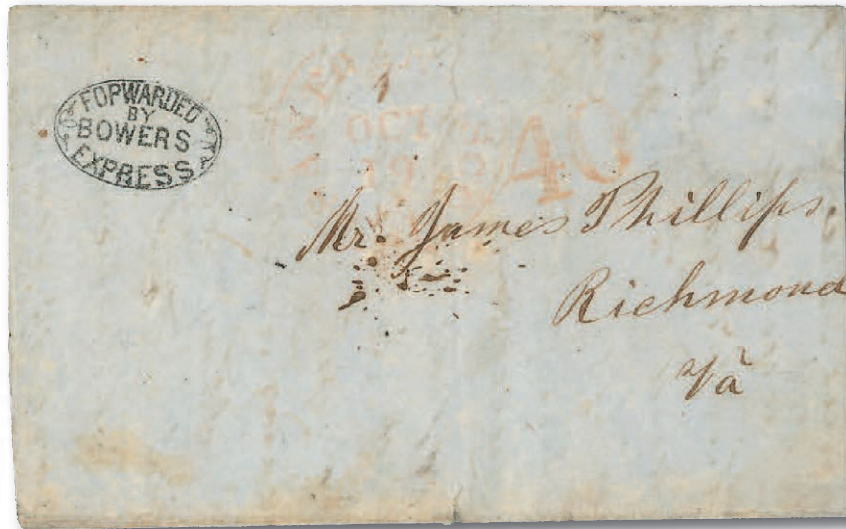 FORWARDED
BY
BOWERS
EXPRESS
OCT
19
40
Mr. James Phillips,
Richmond
Va